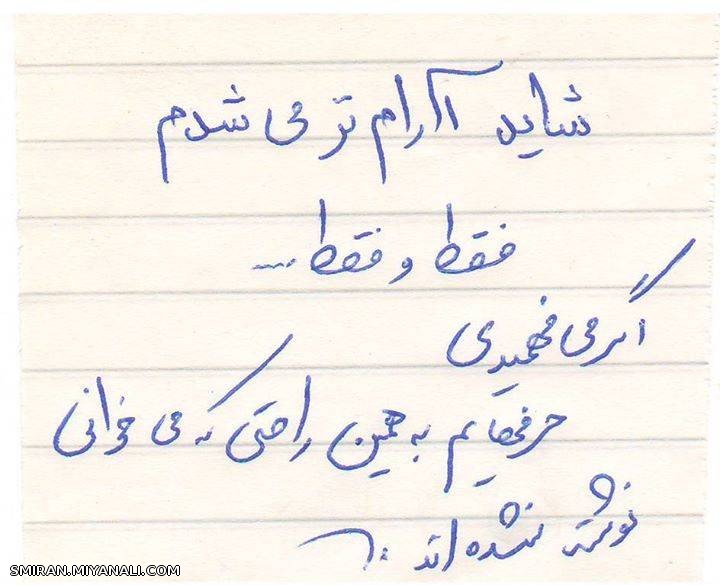 شاید آرام تر می شدم
فقط و فقط ...
اگر می فهمیدی
حرفهایم به همین راحتی که می خوانی
نوشته نشده اند
SMIRAN.MIYANALI.COM